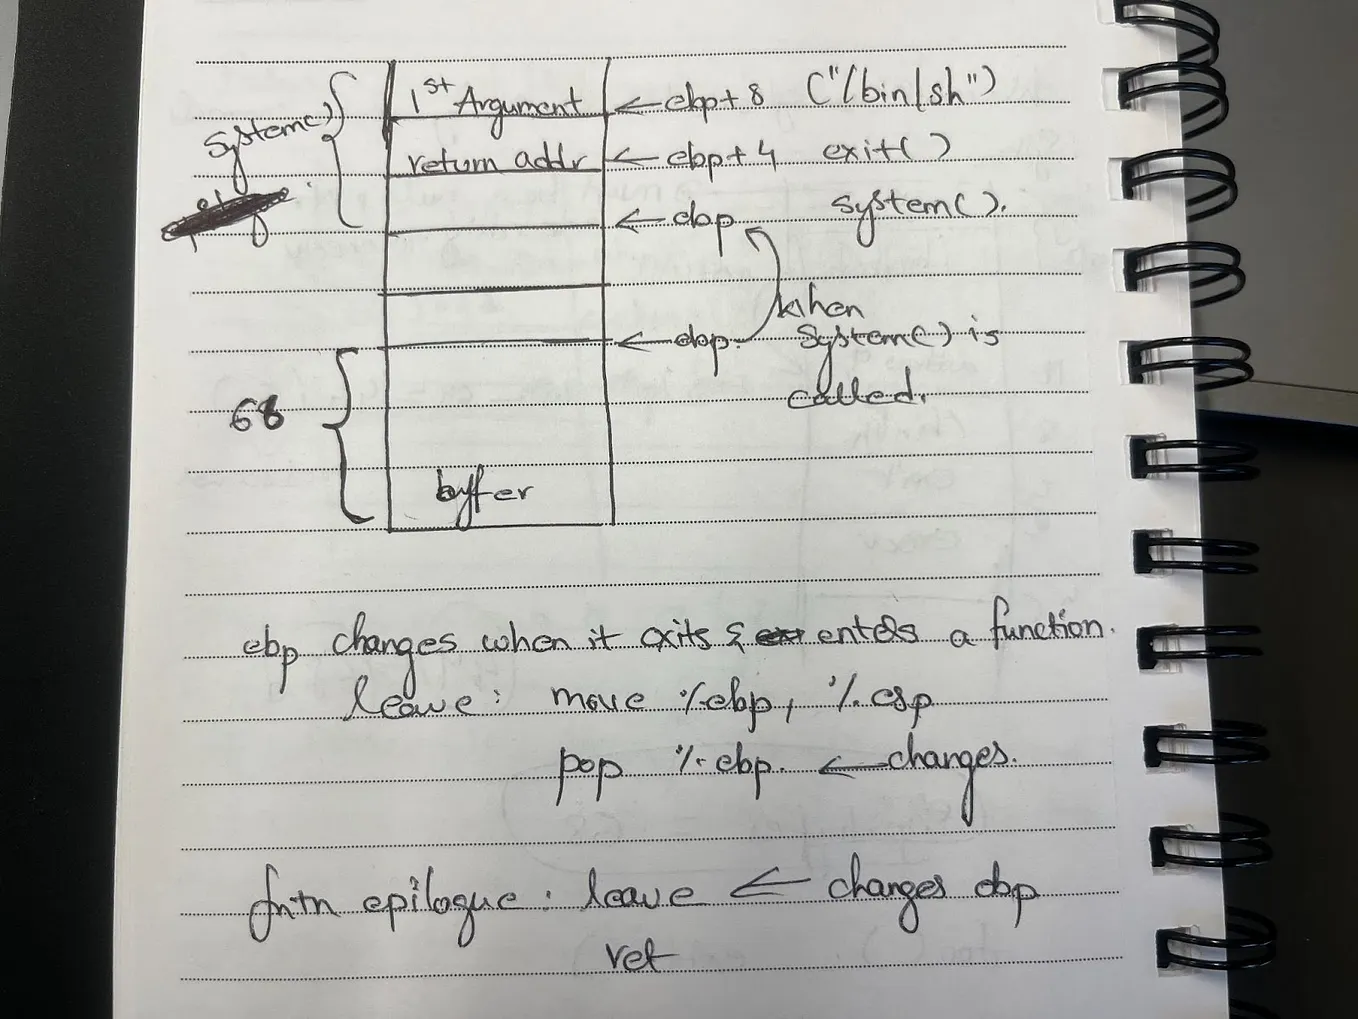 1st Argument ← ebp + 8 ("/bin/sh")
system()
return addr ← ebp + 4 exit()
← ebp system().
when
← ebp system() is
called.
68
buffer
ebp changes when it exits & enters a function.
leave: move %ebp, %esp
pop %ebp. ← changes.
fntn epilogue: leave ← changes ebp
ret